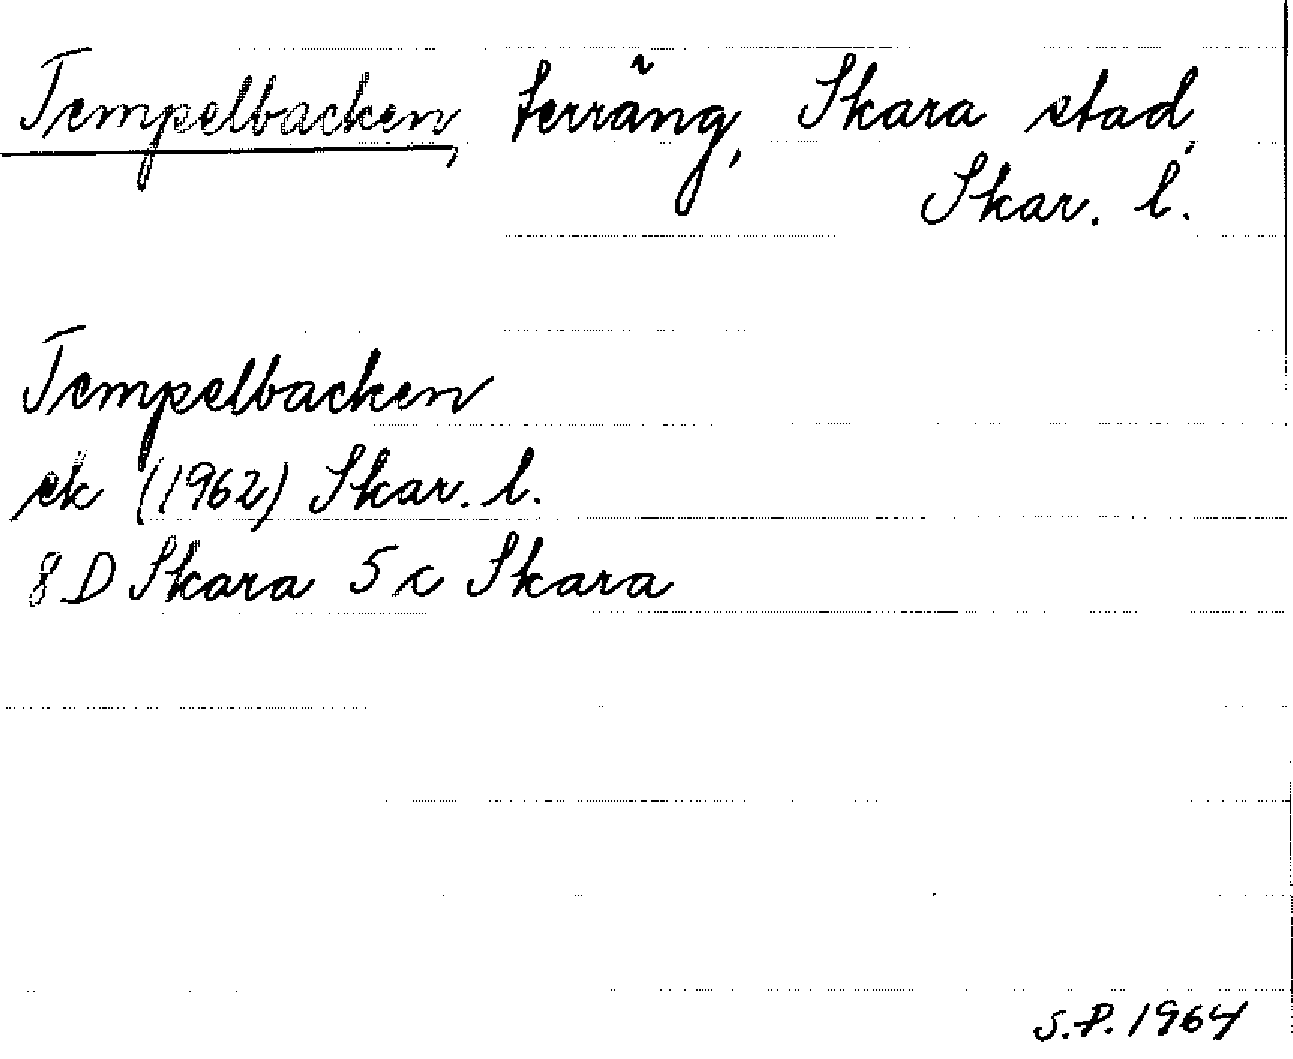 Tempelbacken, terräng, Skara stad,
Skar. l.
Tempelbacken
ek (1962) Skar. l.
8 D Skara 5 c Skara
S.P. 1964